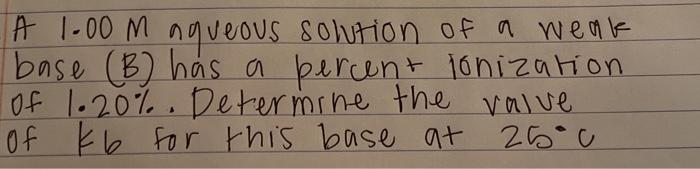 A 1.00 M aqueous solution of a weak
base (B) has a percent ionization
of 1.20%. Determine the value
of kb for this base at 25°C